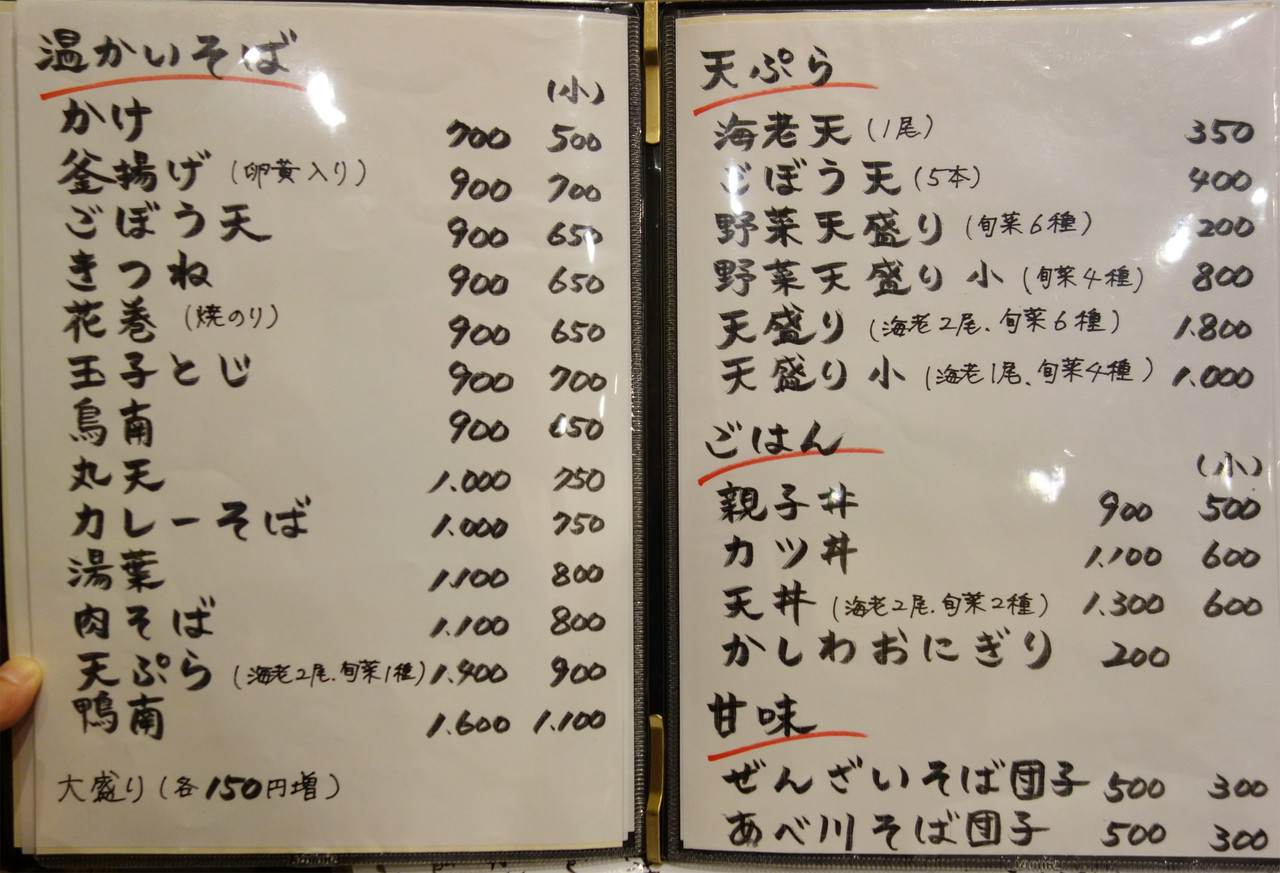 温かいそば
(小)
かけ 700 500
釜揚げ (卵黄入り) 900 700
ごぼう天 900 650
きつね 900 650
花巻 (焼のり) 900 650
玉子とじ 900 700
鳥南 900 650
丸天 1.000 750
カレーそば 1.000 750
湯葉 1.100 800
肉そば 1.100 800
天ぷら (海老2尾.旬菜1種) 1.400 900
鴨南 1.600 1.100
大盛り (各150円増)
天ぷら
海老天 (1尾) 350
ごぼう天 (5本) 400
野菜天盛り (旬菜6種) 200
野菜天盛り 小 (旬菜4種) 800
天盛り (海老2尾、旬菜6種) 1.800
天盛り 小 (海老1尾、旬菜4種) 1.000
ごはん
(小)
親子丼 900 500
カツ丼 1.100 600
天丼 (海老2尾.旬菜2種) 1.300 600
かしわおにぎり 200
甘味
ぜんざいそば団子 500 300
あべ川そば団子 500 300